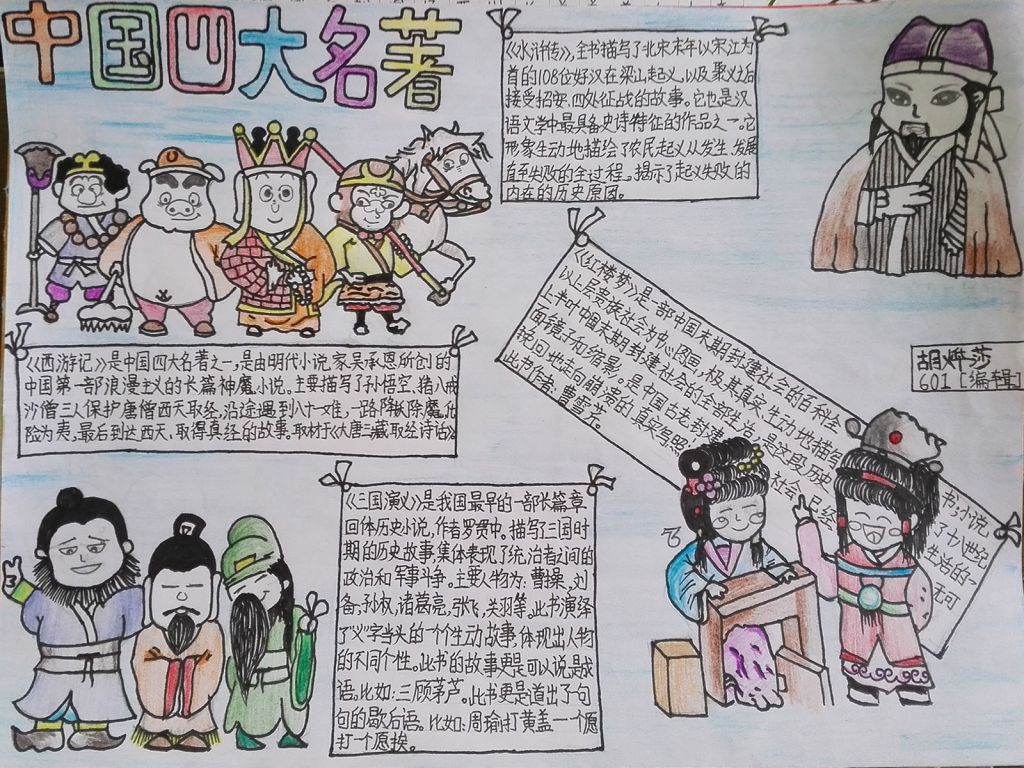 中国四大名著
《水浒传》,全书描写了北宋末年以宋江为
首的108位好汉在梁山起义,以及聚义后
接受招安、四处征战的故事。它也是汉
语文学中最具备史诗特征的作品之一。它
形象生动地描绘了农民起义从发生、发展
直至失败的全过程。揭示了起义失败的
内在的历史原因。
《西游记》是中国四大名著之一,是由明代小说家吴承恩所创的
中国第一部浪漫主义的长篇神魔小说。主要描写了孙悟空、猪八戒
沙僧三人保护唐僧西天取经,沿途遇到八十一难,一路降妖除魔,化
险为夷。最后到达西天,取得真经的故事。取材于《大唐三藏取经诗话》
《红楼梦》是一部中国末期封建社会的百科全书,小说
以上层贵族社会为中心图画,极其真实、生动地描绘了十八世纪
上半叶中国末期封建社会的全部生活,是这段历史生活的一
面镜子和缩影,是中国古老封建社会已经无可
挽回地走向崩溃的真实写照
此书作者:曹雪芹。
胡烨莎
601[编辑]
《三国演义》是我国最早的一部长篇章
回体历史小说,作者罗贯中。描写三国时
期的历史故事,集体表现了统治者之间的
政治和军事斗争。主要人物为:曹操、刘
备、孙权、诸葛亮、张飞、关羽等。此书演绎
了“义”字当头的一个个生动故事,体现出人物
的不同个性。此书的故事更是可以说是成
语。比如:三顾茅芦。此书更是道出了句
句的歇后语。比如:周瑜打黄盖——一个愿
打一个愿挨。